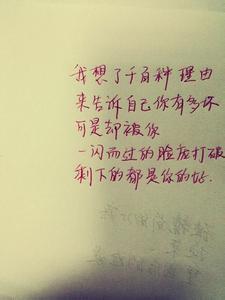 我想了千百种理由
来告诉自己你有多坏
可是却被你
一闪而过的脸庞打破
剩下的都是你的好.